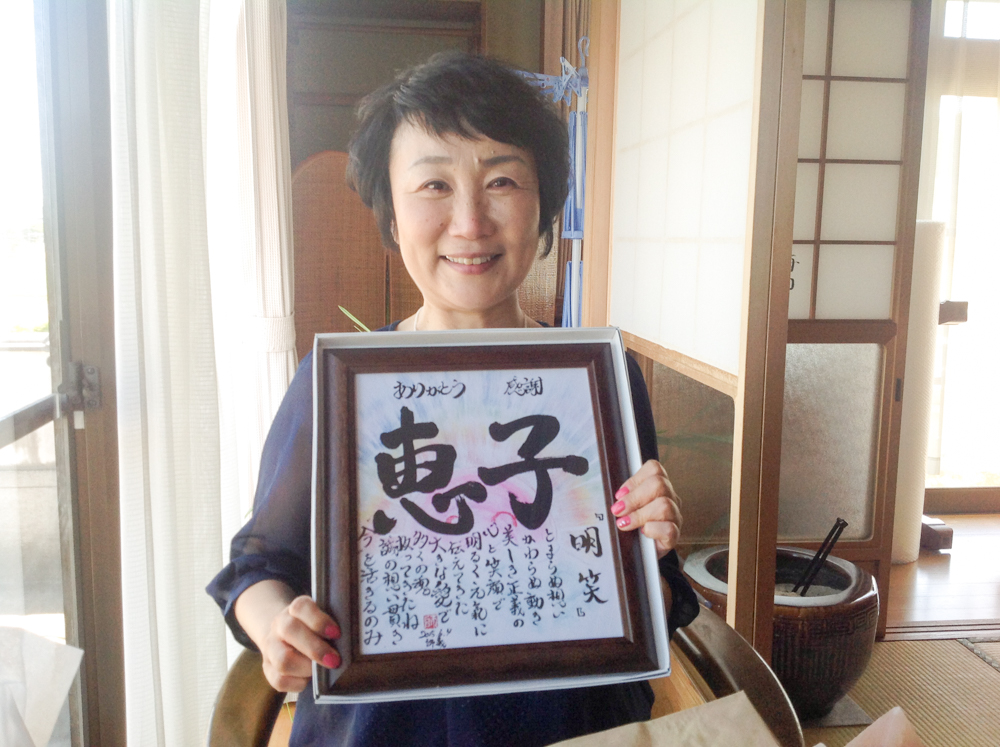 ありがとう 感謝
恵子
『明笑』
とまらぬ想い
かわらぬ動き
美しき正義の
心と笑顔で
明るく元気に
伝えてきた
大きな で
多くの魂
救ってきたね
の想い貫き
今を活きるのみ